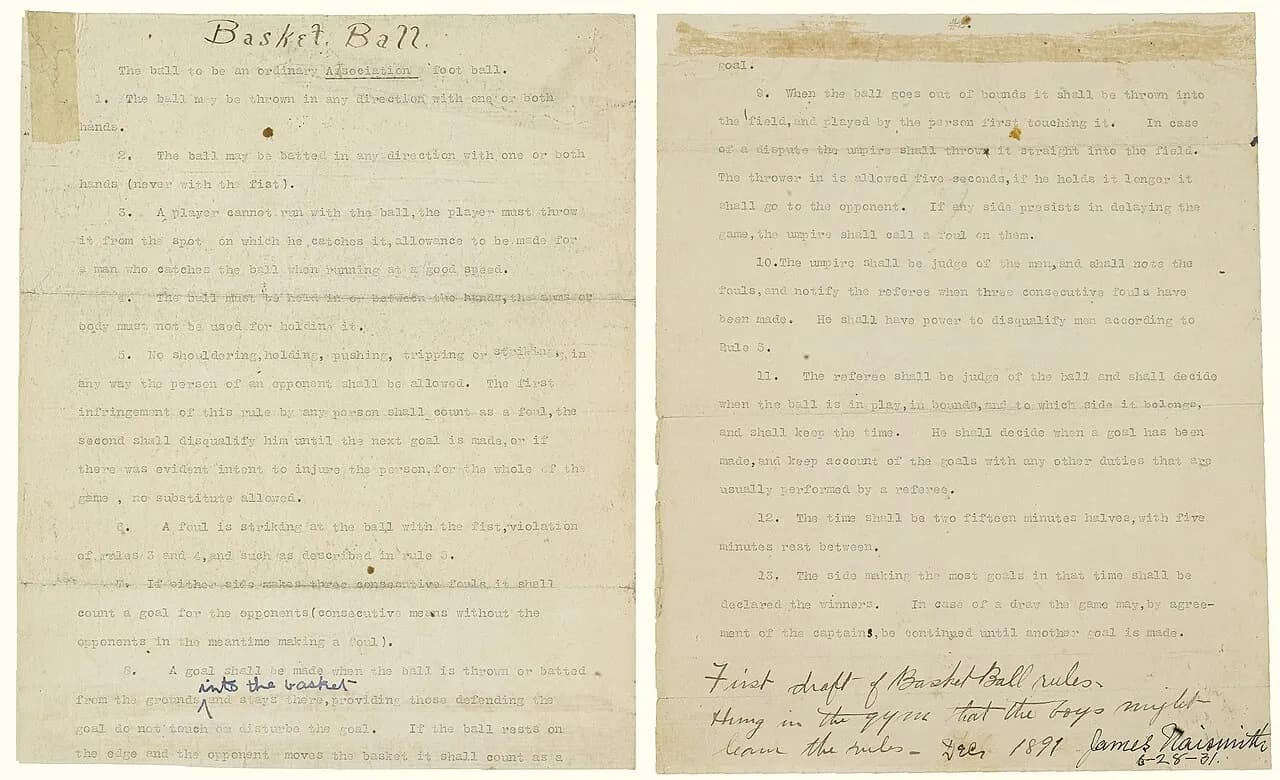 Basket Ball.
The ball to be an ordinary Association foot ball.
1. The ball may be thrown in any direction with one or both
hands.
2. The ball may be batted in any direction with one or both
hands (never with the fist).
3. A player cannot run with the ball,the player must throw
it from the spot on which he catches it,allowance to be made for
a man who catches the ball when running at a good speed.
4. The ball must be held in or between the hands,the arms or
body must not be used for holding it.
5. No shouldering,holding, pushing, tripping or striking, in
any way the person of an opponent shall be allowed. The first
infringement of this rule by any person shall count as a foul,the
second shall disqualify him until the next goal is made,or if
there was evident intent to injure the person,for the whole of the
game , no substitute allowed.
6. A foul is striking at the ball with the fist,violation
of rules 3 and 4,and such as described in rule 5.
7. If either side makes three consecutive fouls,it shall
count a goal for the opponents(consecutive means without the
opponents in the meantime making a foul).
8. A goal shall be made when the ball is thrown or batted
into the basket
from the grounds and stays there,providing those defending the
goal do not touch or disturbe the goal. If the ball rests on
the edge and the opponent moves the basket it shall count as a
goal.
9. When the ball goes out of bounds it shall be thrown into
the field,and played by the person first touching it. In case
of a dispute the umpire shall throw it straight into the field.
The thrower in is allowed five seconds,if he holds it longer it
shall go to the opponent. If any side presists in delaying the
game,the umpire shall call a foul on them.
10.The umpire shall be judge of the men,and shall note the
fouls,and notify the referee when three consecutive fouls have
been made. He shall have power to disqualify men according to
Rule 5.
11. The referee shall be judge of the ball and shall decide
when the ball is in play,in bounds,and to which side it belongs,
and shall keep the time. He shall decide when a goal has been
made,and keep account of the goals with any other duties that are
usually performed by a referee.
12. The time shall be two fifteen minutes halves,with five
minutes rest between.
13. The side making the most goals in that time shall be
declared the winners. In case of a draw the game may,by agree-
ment of the captains,be continued until another goal is made.
First draft of Basket Ball rules.
Hung in the gym that the boys might
learn the rules - Dec. 1891 James Naismith
6-28-31.